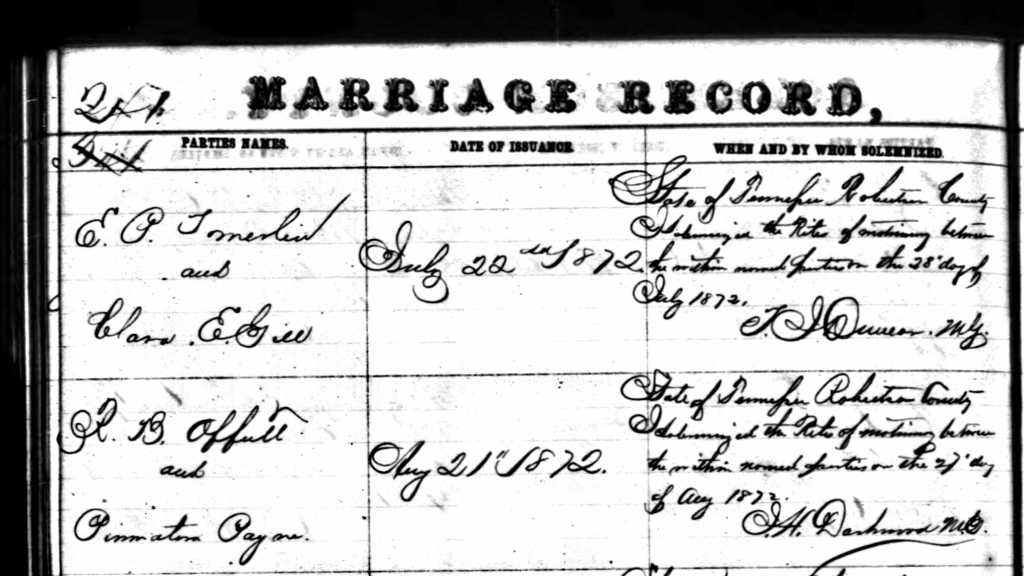 MARRIAGE RECORD,
PARTIES NAMES. DATE OF ISSUANCE. WHEN AND BY WHOM SOLEMNIZED.
E. P. Tomerlin
and
Clara E. Gill
July 22nd 1872.
State of Tennessee Robertson County
I solemnized the Rite of matrimony between
the within named parties on the 28" day of
July 1872.
M.G.
R. B. Offutt
and
Payne.
Aug 21st 1872.
State of Tennessee Robertson County
I solemnized the Rite of matrimony between
the within named parties on the 27" day
of Aug 1872.
M.G.